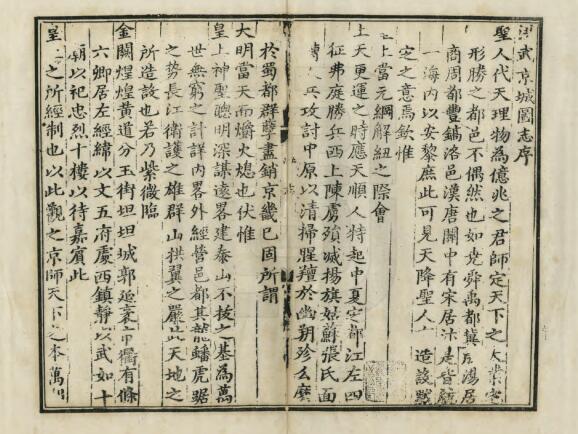 洪武京城圖志序
聖人代天理物為億兆之君師定天下之大業必
形勝之都邑不偶然也如堯舜禹都冀
商周都豐鎬洛邑漢唐關中有宋居汴是皆
一海內以安黎庶此可見天降聖人 造設默
定之意焉欽惟
上當元綱解紐之際會
上天更運之時應天順人特起中夏定都江左四
征弗庭勝兵西上陳虜殞城揚旗姑蘇張氏面
縛 兵攻討中原以清掃腥羶於幽朔殄么麽
於蜀都群孽盡銷京畿已固所謂
大明當天而爝火熄也伏惟
皇上神聖聰明深謀遠畧建泰山不拔之基為萬
世無窮之計詳內畧外經營邑都其龍蟠虎踞
之勢長江衛護之雄群山拱翼之嚴此天地之
所造設也若乃紫微臨
金闕煌煌黃道分玉街坦坦城郭延袤市衢有條
六卿居左經緯以文五府處西鎮靜以武如十
廟以祀忠烈十樓以待嘉賓此
皇上之所經制也以此觀之京師天下之本萬